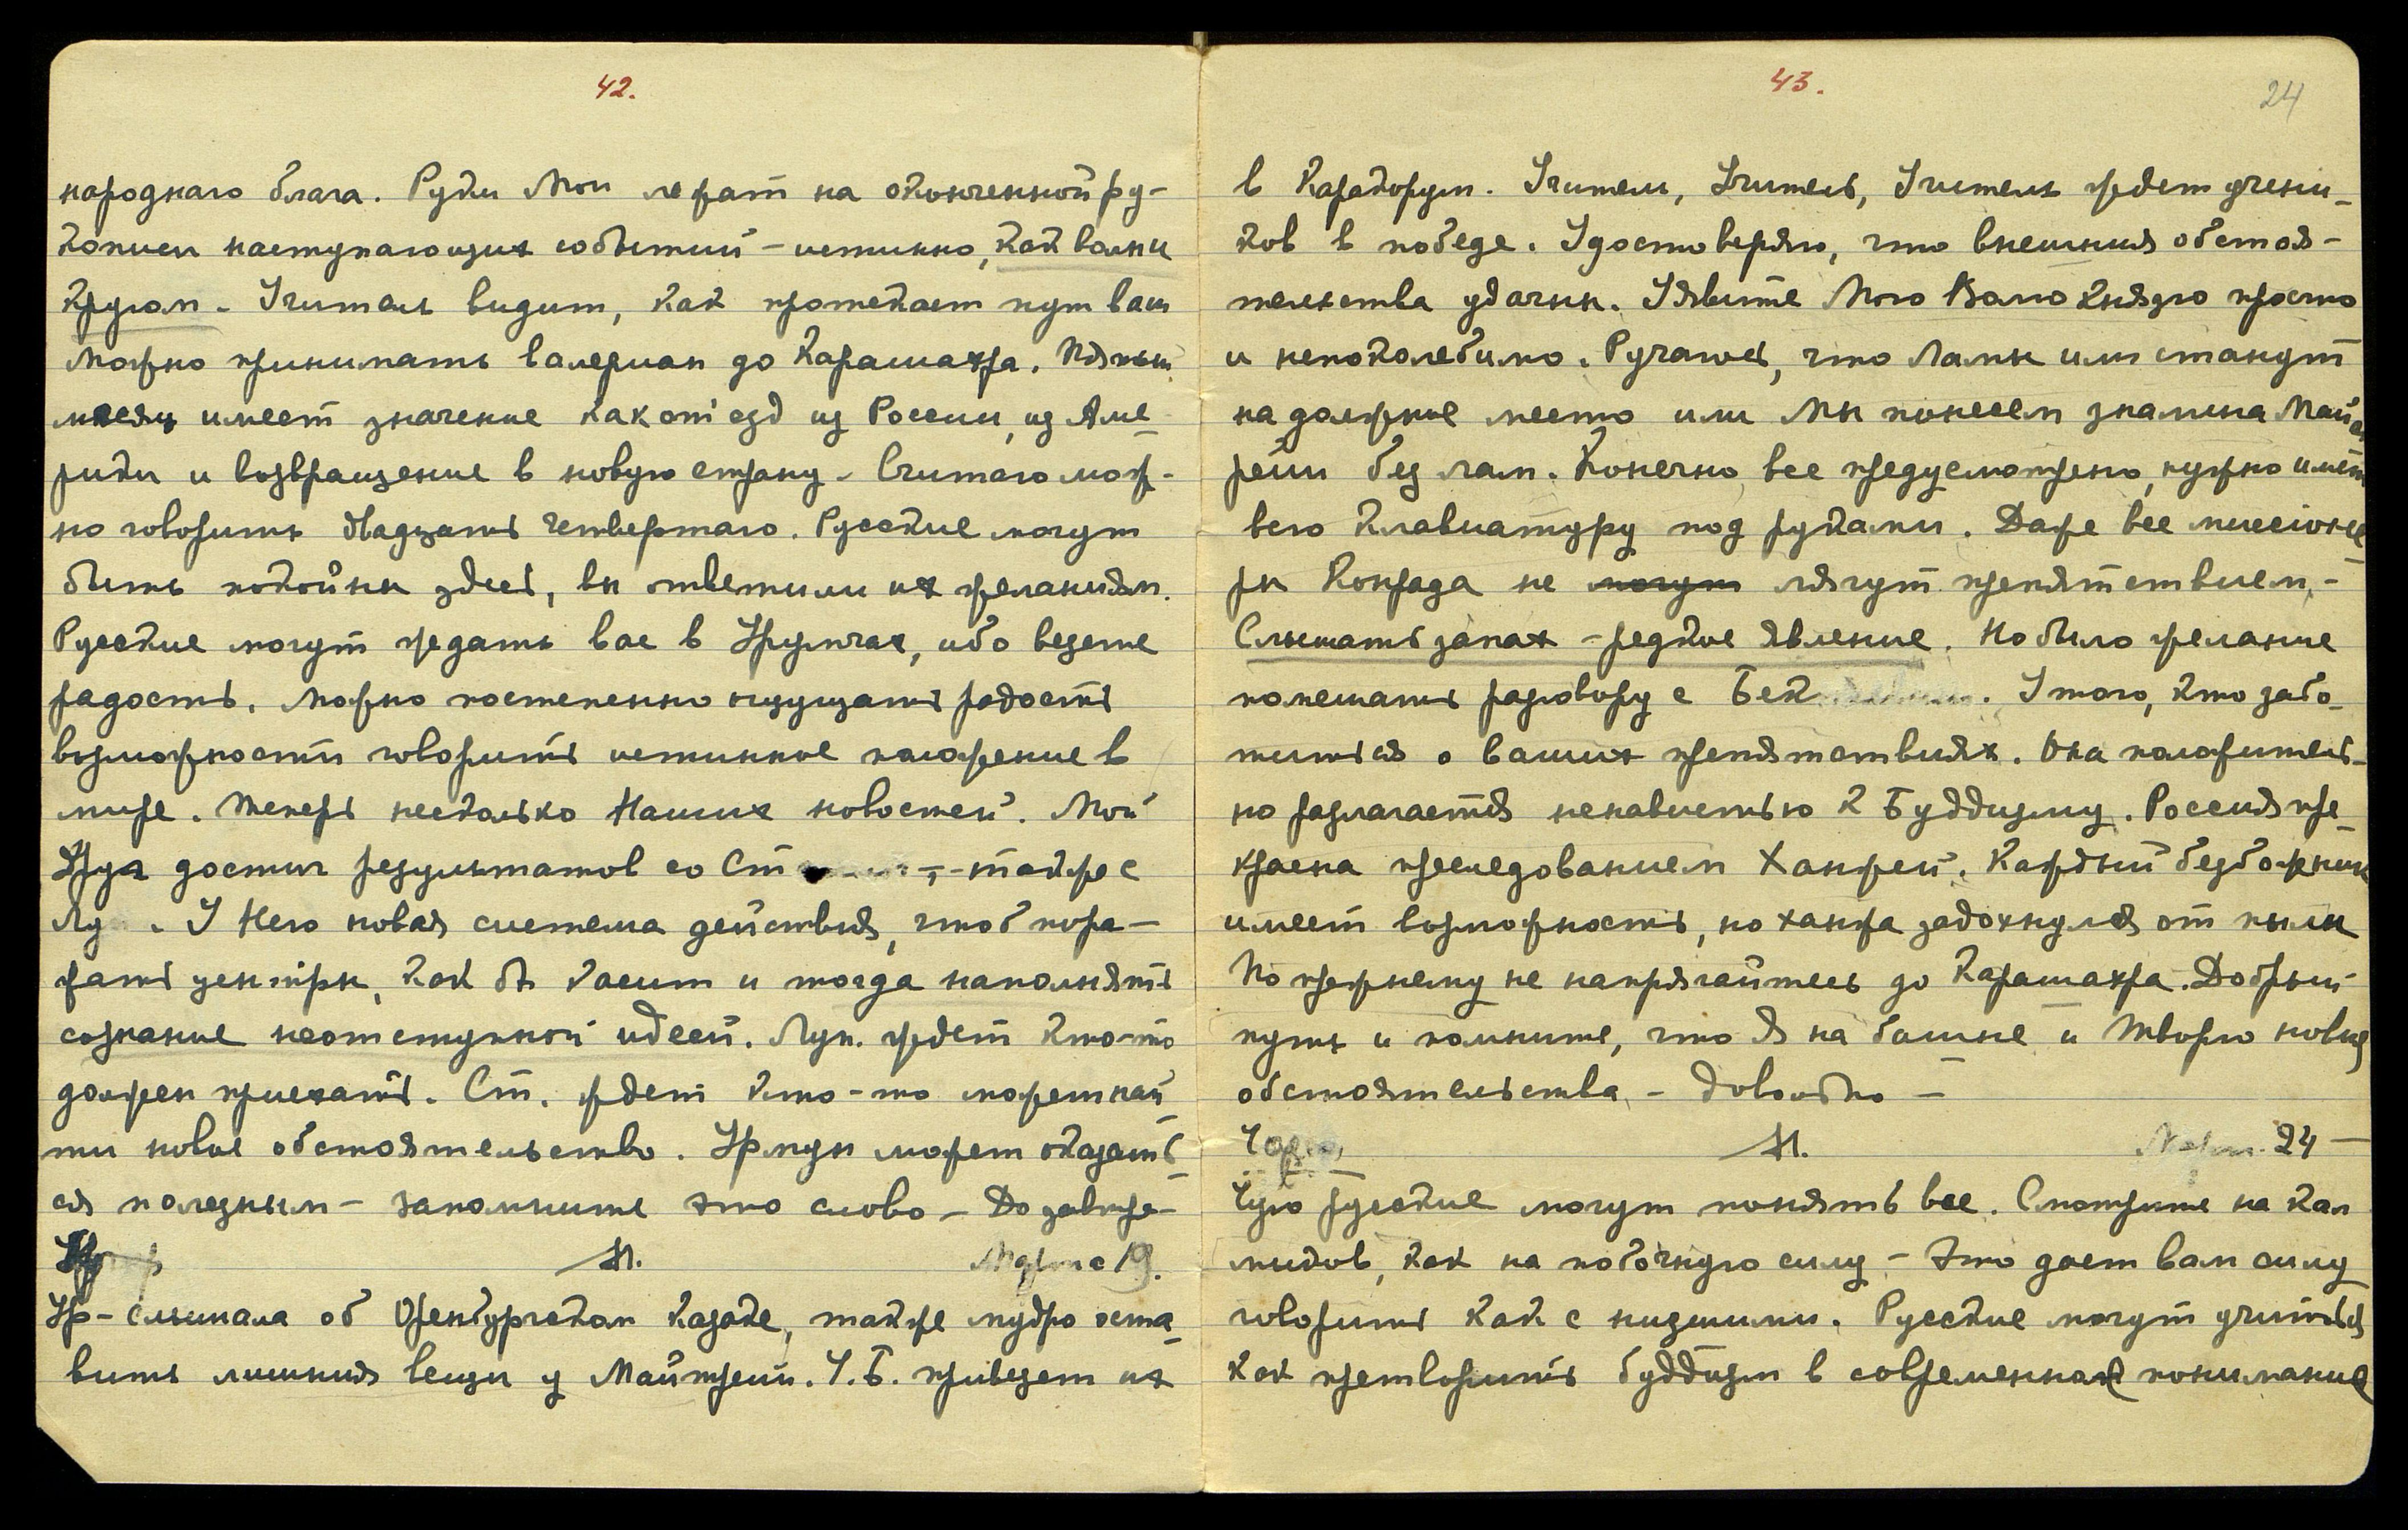 42.
народнаго блага. Руки Мои лежат на оконченной ру-
кописи наступающих событий – истинно, как волны
кругом – Учитель видит, как протекает путь ваш
можно принимать валериан до Карашахра. Лунный
месяц имеет значение как отъезд из России, из Аме-
рики и возвращение в новую страну – Считаю мож-
но говорить двадцать четвертаго. Русские могут
быть покойны здесь, вы ответили их желаниям.
Русские могут ждать вас в Урумчах, ибо везете
радость. Можно постепенно ощущать радость
возможности говорить истинное положение в
мире. Теперь несколько Наших новостей. Мой
Друг достиг результатов со Ст – также с
Лу . У Него новая система действия, чтоб пора-
жать центры, как бы касит и тогда наполнять
сознание неотступной идеей. Лун. ждет кто-то
должен приехать. Ст. ждет кто-то может най
ти новое обстоятельство. Урмун может оказать-
ся полезным – запомните это слово – До завтра –
М. Марта 19.
Ур – слышала об Оренбургском казаке, также мудро оста-
вить лишния вещи у Майтрейи. Ч. Б. привезет их
43.
24
в Каракорум. Учитель, Учитель, Учитель ждет учени-
ков в победе. Удостоверяю, что внешния обстоя-
тельства удачны. Явите Мою Волю князю просто
и непоколебимо. Ручаюсь, что ламы или станут
на должное место или Мы понесем знамена Май
рейи без лам. Конечно все предусмотрено, нужно иметь
всю клавиатуру под руками. Даже все миссионе-
ры Конрада не могут лягут препятствием, –
Слышать запах – редкое явление. Но было желание
помешать разговору с Бек . У того, кто забо-
титься о ваших препятствиях. Она положитель-
но разлагается ненавистью к Буддизму. Россия пре-
красна преследованием Ханжей. Каждый безбожник
имеет возможность, но ханжа задохнулся от пыли
По прежнему не напрягайтесь до Карашахра. Добрый
путь и помните, что Я на башне и творю новыя
обстоятельства – довольно –
М. Март. 24 –
Чую русские могут понять все. Смотрите на кал
мыков, как на побочную силу – это дает вам силу
говорить как с низшими. Русские могут учиться
как претворить буддизм в современное понимание